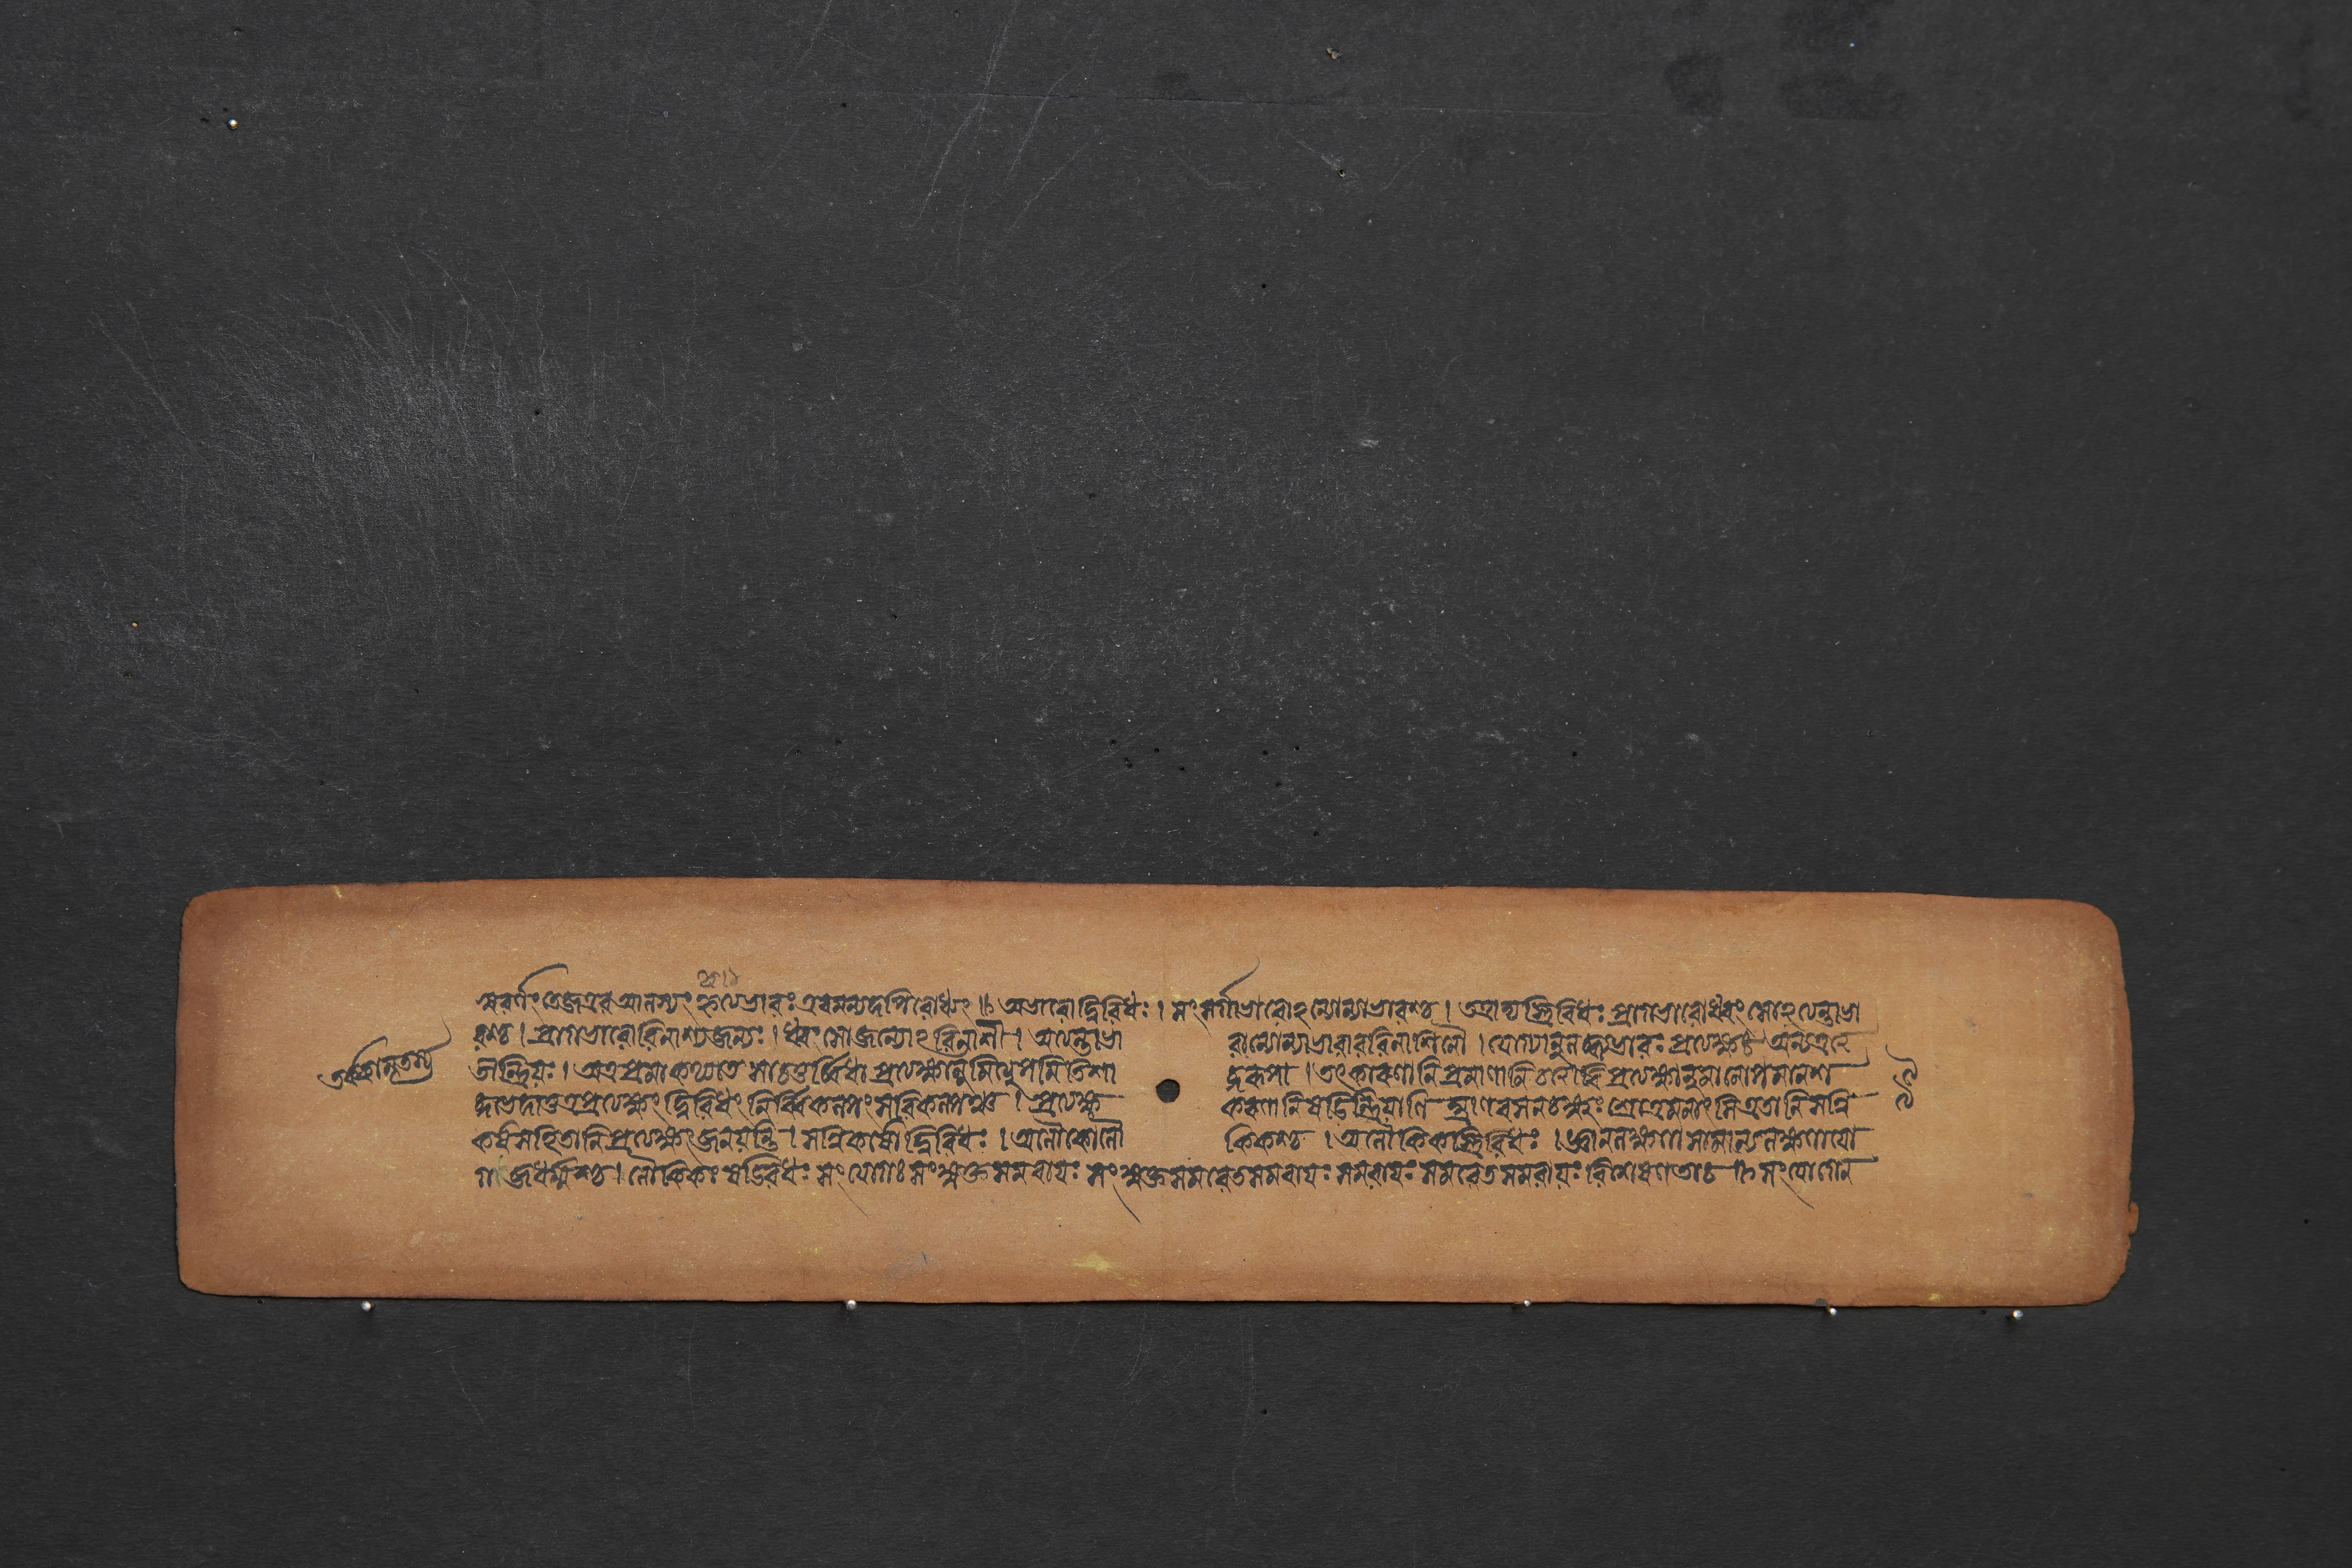 সুবর্ণং তেজ এব আলস্যং হ্যভাবঃ এবমন্যদপি বোধ্যং ॥ অভাবো দ্বিবিধঃ । সংসর্গাভাবোঽন্যোন্যাভাবশ্চ । আদ্যস্ত্রিবিধঃ প্রাগভাবো ধ্বংসোঽত্যন্তাভা
বশ্চ । প্রাগভাবো বিনাশ্যজন্যঃ । ধ্বংসো জন্যোঽবিনাশী । অত্যন্তাভা বান্যোন্যাভাবাববিনাশিনৌ । যোগ্যানুপলব্ধ্যাভাবঃ প্রত্যক্ষঃ অন্যত্র
তীন্দ্রিয়ঃ । অত্র প্রমা কথ্যতে সা চতুর্ব্বিধা প্রত্যক্ষানুমিত্যুপমিতিশা ব্দরূপা । তৎকারণানি প্রমাণানি চত্বারি প্রত্যক্ষানুমানোপমানশ
ব্দভেদাত্ তত্র প্রত্যক্ষং দ্বিবিধং নির্ব্বিকল্পকং সবিকল্পকঞ্চ । প্রত্যক্ষ করণানি ষড়িন্দ্রিয়াণি ঘ্রাণরসনচক্ষুঃ শ্রোত্রমনাংসি এতানি সন্নি
কর্ষসহিতানি প্রত্যক্ষং জনয়ন্তি । সন্নিকর্ষো দ্বিবিধঃ । অলৌকিকো লৌ কিকশ্চ । অলৌকিকস্ত্রিবিধঃ । জ্ঞানলক্ষণা সামান্যলক্ষণা যো
গজধর্ম্মশ্চ । লৌকিকঃ ষড়্বিধঃ সংযোগঃ সংযুক্তসমবায়ঃ সংযুক্তসমবেতসমবায়ঃ সমবায়ঃ সমবেতসমবায়ঃ বিশেষণতা চ সংযোগেন